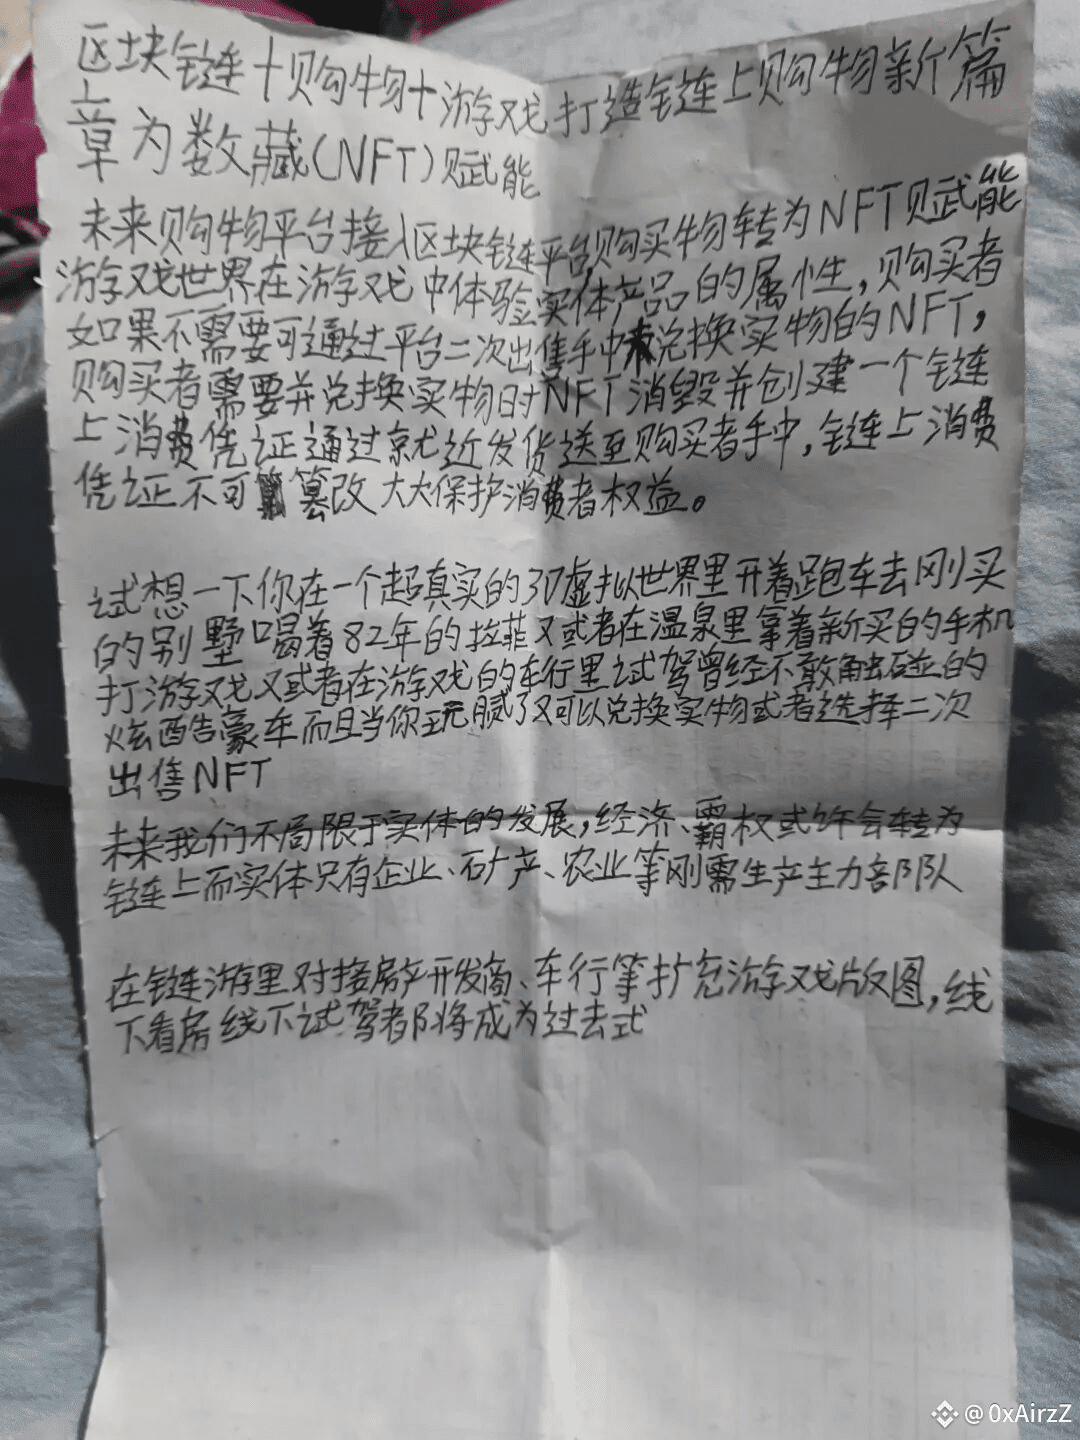 区块链+购物+游戏打造链上购物新篇
章为数藏(NFT)赋能
未来购物平台接入区块链平台,购买物转为NFT赋能
游戏世界在游戏中体验实体产品的属性,购买者
如果不需要可通过平台二次出售手中未兑换实物的NFT,
购买者需要并兑换实物时NFT消毁并创建一个链
上消费凭证通过就近发货送至购买者手中,链上消费
凭证不可篡改大大保护消费者权益。
试想一下你在一个超真实的3D虚拟世界里开着跑车去刚买
的别野喝着82年的拉菲又或者在温泉里拿着新买的手机
打游戏又或者在游戏的车行里试驾曾经不敢触碰的
炫酷豪车而且当你玩腻了又可以兑换实物或者选择二次
出售NFT
未来我们不局限于实体的发展,经济、霸权或许会转为
链上而实体只有企业、矿产、农业等刚需生产主力部队
在链游里对接房产开发商、车行等扩充游戏版图,线
下看房线下试驾都将成为过去式
@0xAirzZ